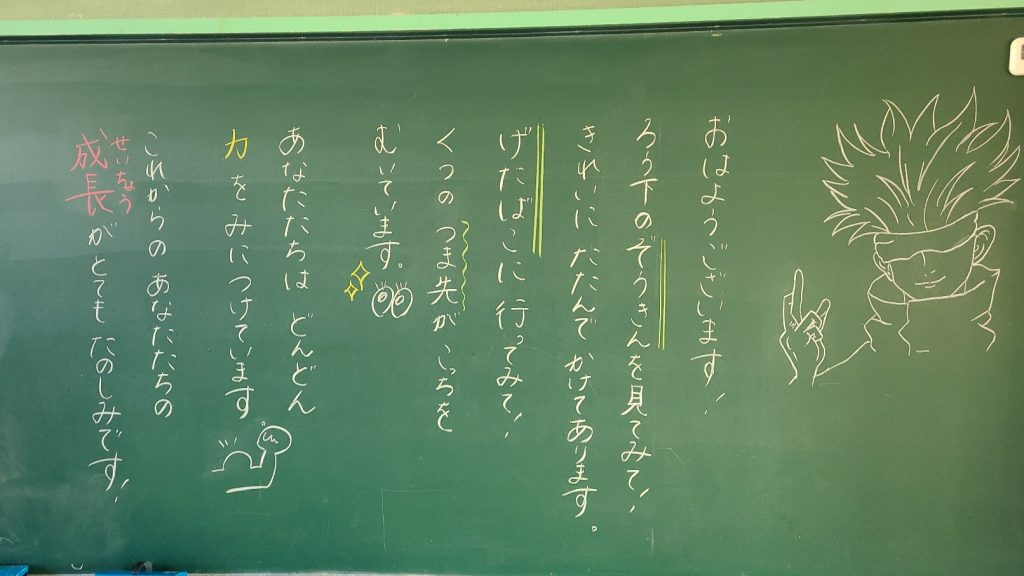 おはようございます!
ろう下のぞうきんを見てみて!
きれいに たたんで かけてあります。
げたばこに 行ってみて!
くつの つま先が こっちを
むいています。
あなたたちは どんどん
力をみにつけています
これからの あなたたちの
せいちょう
成長がとても たのしみです!